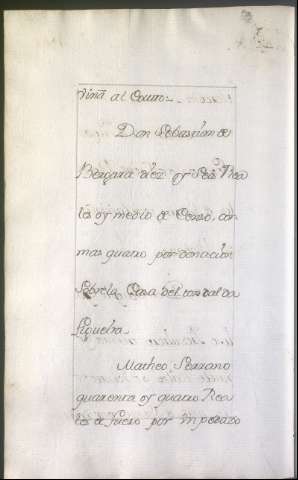 Viña al Couto.
Don Sebastian de
Bergara diez y Seis Rea
les y medio de Censo, con
mas quatro por donacion
Sobre la Casa del tos dal da
Figueira
Matheo Serrano
quarenta y quatro Rea
les de fuero por un pedazo